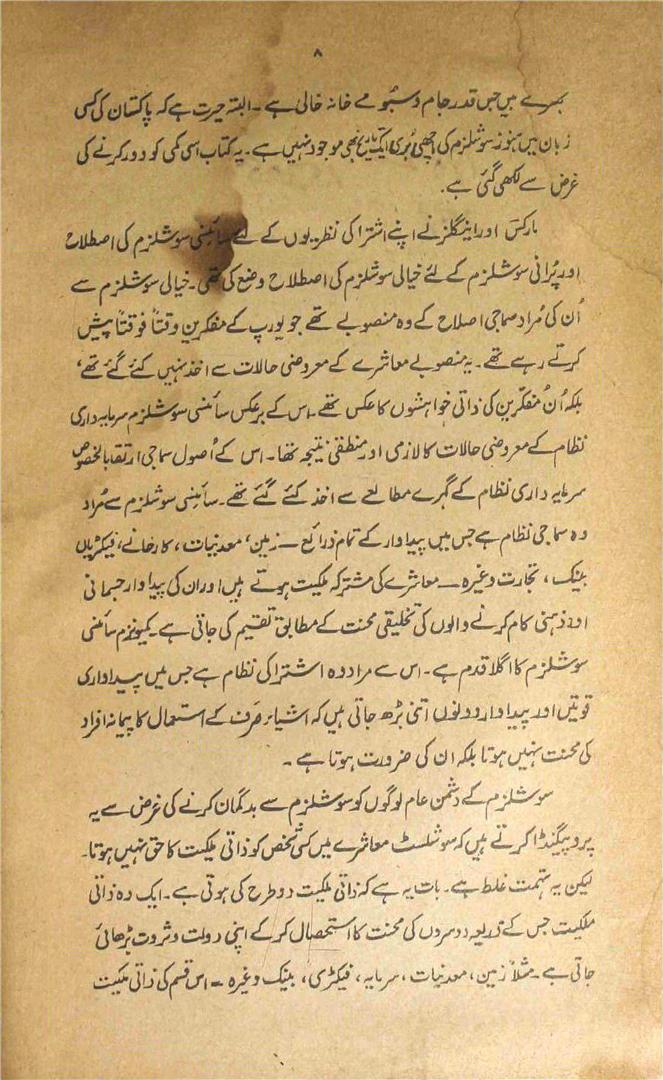 ۸
بھرے ہیں جس قدر جام و سبُو مے خانہ خالی ہے ۔ البتہ حیرت ہے کہ پاکستان کی کسی
زبان میں ہنوز سوشلزم کی اچھی بُری ایک تاریخ بھی موجود نہیں ہے۔ یہ کتاب اسی کمی کو دور کرنے کی
غرض سے لکھی گئی ہے۔
مارکس اور اینگلز نے اپنے اشتراکی نظریوں کے لئے سائنسی سوشلزم کی اصطلاح
اور پُرانی سوشلزم کے لئے خیالی سوشلزم کی اصطلاح وضع کی تھی۔ خیالی سوشلزم سے
اُن کی مُراد سماجی اصلاح کے وہ منصوبے تھے جو یورپ کے مفکرین وقتاً فوقتاً پیش
کرتے رہے تھے۔ یہ منصوبے معاشرے کے معروضی حالات سے اخذ نہیں کئے گئے تھے،
بلکہ اُن مفکرین کی ذاتی خواہشوں کا عکس تھے۔ اس کے برعکس سائنسی سوشلزم سرمایہ داری
نظام کے معروضی حالات کا لازمی اور منطقی نتیجہ تھا۔ اس کے اُصول سماجی ارتقا بالخصوص
سرمایہ داری نظام کے گہرے مطالعے سے اخذ کئے گئے تھے۔ سائنسی سوشلزم سے مُراد
وہ سماجی نظام ہے جس میں پیداوار کے تمام ذرائع — زمین، معدنیات، کارخانے، فیکٹریاں
بینک، تجارت وغیرہ — معاشرے کی مشترکہ ملکیت ہوتے ہیں اور ان کی پیداوار جسمانی
اور ذہنی کام کرنے والوں کی تخلیقی محنت کے مطابق تقسیم کی جاتی ہے۔ کمیونزم سائنسی
سوشلزم کا اگلا قدم ہے۔ اس سے مراد وہ اشتراکی نظام ہے جس میں پیداواری
قوتیں اور پیداوار دونوں اتنی بڑھ جاتی ہیں کہ اشیاءِ صَرف کے استعمال کا پیمانہ افراد
کی محنت نہیں ہوتا بلکہ ان کی ضرورت ہوتا ہے ۔
سوشلزم کے دشمن عام لوگوں کو سوشلزم سے بدگمان کرنے کی غرض سے یہ
پروپیگنڈا کرتے ہیں کہ سوشلسٹ معاشرے میں کسی شخص کو ذاتی ملکیت کا حق نہیں ہوتا۔
لیکن یہ تہمت غلط ہے۔ بات یہ ہے کہ ذاتی ملکیت دو طرح کی ہوتی ہے۔ ایک وہ ذاتی
ملکیت جس کے ذریعہ دوسروں کی محنت کا استحصال کر کے اپنی دولت و ثروت بڑھائی
جاتی ہے۔ مثلاً زمین، معدنیات، سرمایہ، فیکٹری، بینک وغیرہ — اس قسم کی ذاتی ملکیت